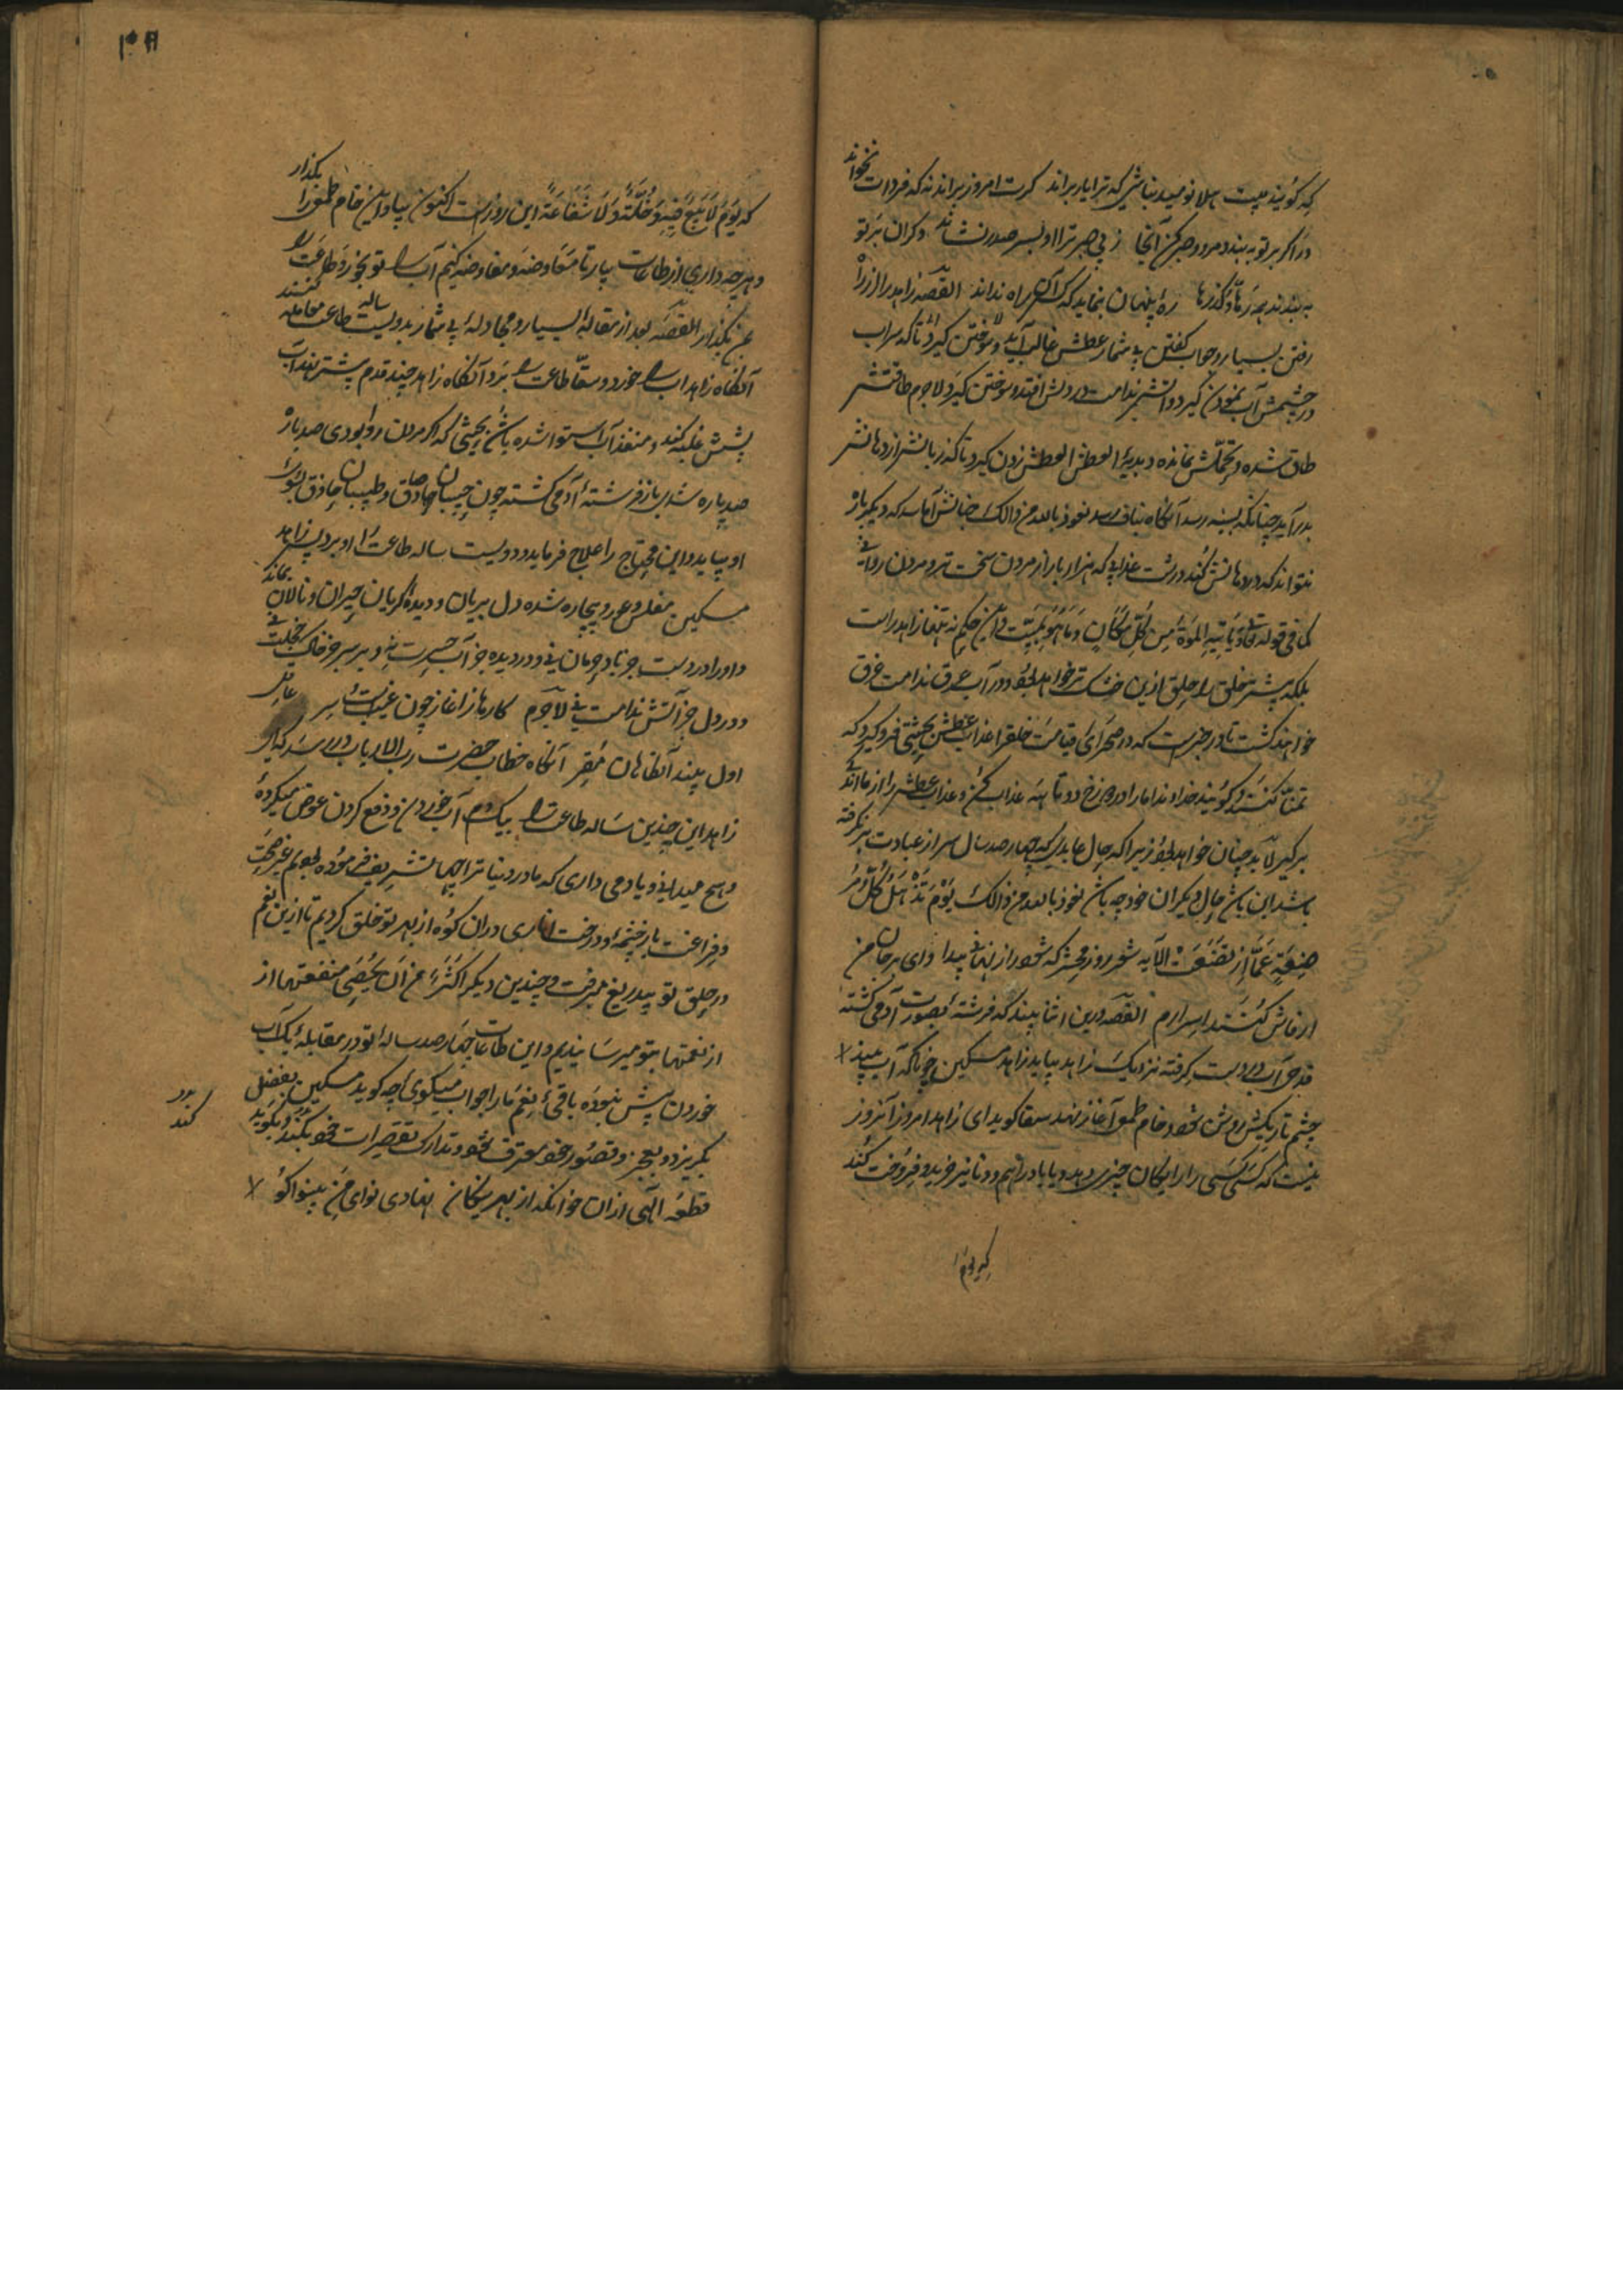 که گویند بیت هلا نومید نباشی که ترا یار براند گرت امروز براند نه که فردات نخواند
در اگر بر تو ببندد مرو و صبر کن آنجا ز پی صبر ترا او بسر صدر نشاند وگران بر تو
ببندد همه رهها و گذرها ره پنهان بنماید که کس آن راه نداند القصه زاهد را از راه
رفتن بسیار و جواب گفتن بی شمار عطش غالب آید و سوختن گیرد تا که سراب
در چشمش آب نمودن گیرد و آتش ندامت در دلش افتد و سوختن گیرد لاجرم طاقتش
طاق شده و تحملش نمانده و بدیهٔ العطش العطش زدن گیرد تا که زبانش از دهانش
بدر آید چنانکه بسینه رسد آنگاه بناف رسد نعوذ بالله من ذالک چنانش آماسد که دیگر باز
نتواند که در دهانش کند در شدت عذابی که هزار بار از مردن سخت تر و مردن روا نی
کما فی قوله تعالی و یأتیه الموت من کل مکان و ما هو بمیت و این حکم نه تنها زاهد راست
بلکه بیشتر خلق را حلق ازین خشک تر خواهد بود و در آب عرق ندامت غرق
خواهند گشت تا در خبرست که در صحرای قیامت خلق را عذاب عطش بحیثی فرو گیرد که
تمنا کنند و گویند خداوندا ما را در دوزخ دوتا همه عذاب کن و عذاب عطش را از ما اندکی
برگیر لابد چنان خواهد بود زیرا که حال عابدی که چهار صد سال سر از عبادت بر نگرفته
باشد این باشد حال دیگران خود چه باشد نعوذ بالله من ذالک یوم تذهل کل مر
ضعة عما ارضعت الآیه شعر روز محشر که شود راز نهانها پیدا وای بر جان من
ار فاش کنند اسرارم القصه درین اثنا بیند که فرشتهٔ بصورت آدمی گشته
قدحی آب در دست گرفته نزدیک زاهد بیاید زاهد مسکین چونکه آب بیند
چشم تاریکش روشن شود و خام طمعی آغاز نهد سقا گوید ای زاهد امروز آنروز
نیست که کسی کسی را رایگان چیزی دهد و یا بادراهم و دنانیر خرید و فروخت کند
که یوم
که یوم لا بیع فیه و لا خلة و لا شفاعة این روزست اکنون بیا و این خام طمعی را بگذار
و هرچه داری از طاعات بیار تا معاوضه و مفاوضه کنیم آب را تو بخور و طاعت را
بمن بگذار القصه بعد از مقالهٔ بسیار و مجادلهٔ بی شمار بدویست ساله طاعت معامله کنند
آنگاه زاهد آب را خورد و سقا طاعت را برد آنگاه زاهد چند قدم پیشتر نهد آب
پیشش غلبه کند و منفذ آب استوا شده باشد بحیثی که اگر مردن روا بودی صد بار
صد پاره شدی باز فرشتهٔ آدمی گشته چون حبیبان صادق و طبیبان حاذق بسوی
او بیاید و این محتاج را علاج فرماید و دویست ساله طاعت را او برد پس زاهد
مسکین مفلس و عور و بیچاره شده دل بریان و دیده گریان حیران و نالان بماند
و او را در دست جز باد حرمان نی و در دیده جز آب حسرت نی و بر سر جز خاک خجلت نی
و در دل جز آتش ندامت نی لاجرم کارها را آغاز چون عیبست سر عاقل
اول ببیند آنها نهان مقر آنگاه خطاب حضرت رب الارباب در رسد که ای
زاهد این چندین ساله طاعت را بیک دم آب خوردن و دفع کردن عوض میکردهٔ
و هیچ میدانی و یاد می داری که ما در دنیا ترا چها تشریف فرموده بودیم غیر صحت
و فراغت یار چشمه و درخت اناری در آن کوه از بهر تو خلق کردیم تا ازین نعم
در حلق تو بیدریغ میرفت و چندین دیگر اکثر من ان یحصی منفعتها از
از نعمتها بتو میرسانیدیم و این طاعات چهار صد سالهٔ تو در مقابلهٔ یک آب
خوردن بیش نبوده باقی نعم ما را جواب میگوی چه گوید مسکین بفضل
بگریزد و بعجز و قصور خود معترف شود و تدارک تقصیرات خود بکند و بگوید
قطعه الهی از آن خوانکه از بهر نیکان نهادی نوای من بینوا کو
بدر
کند